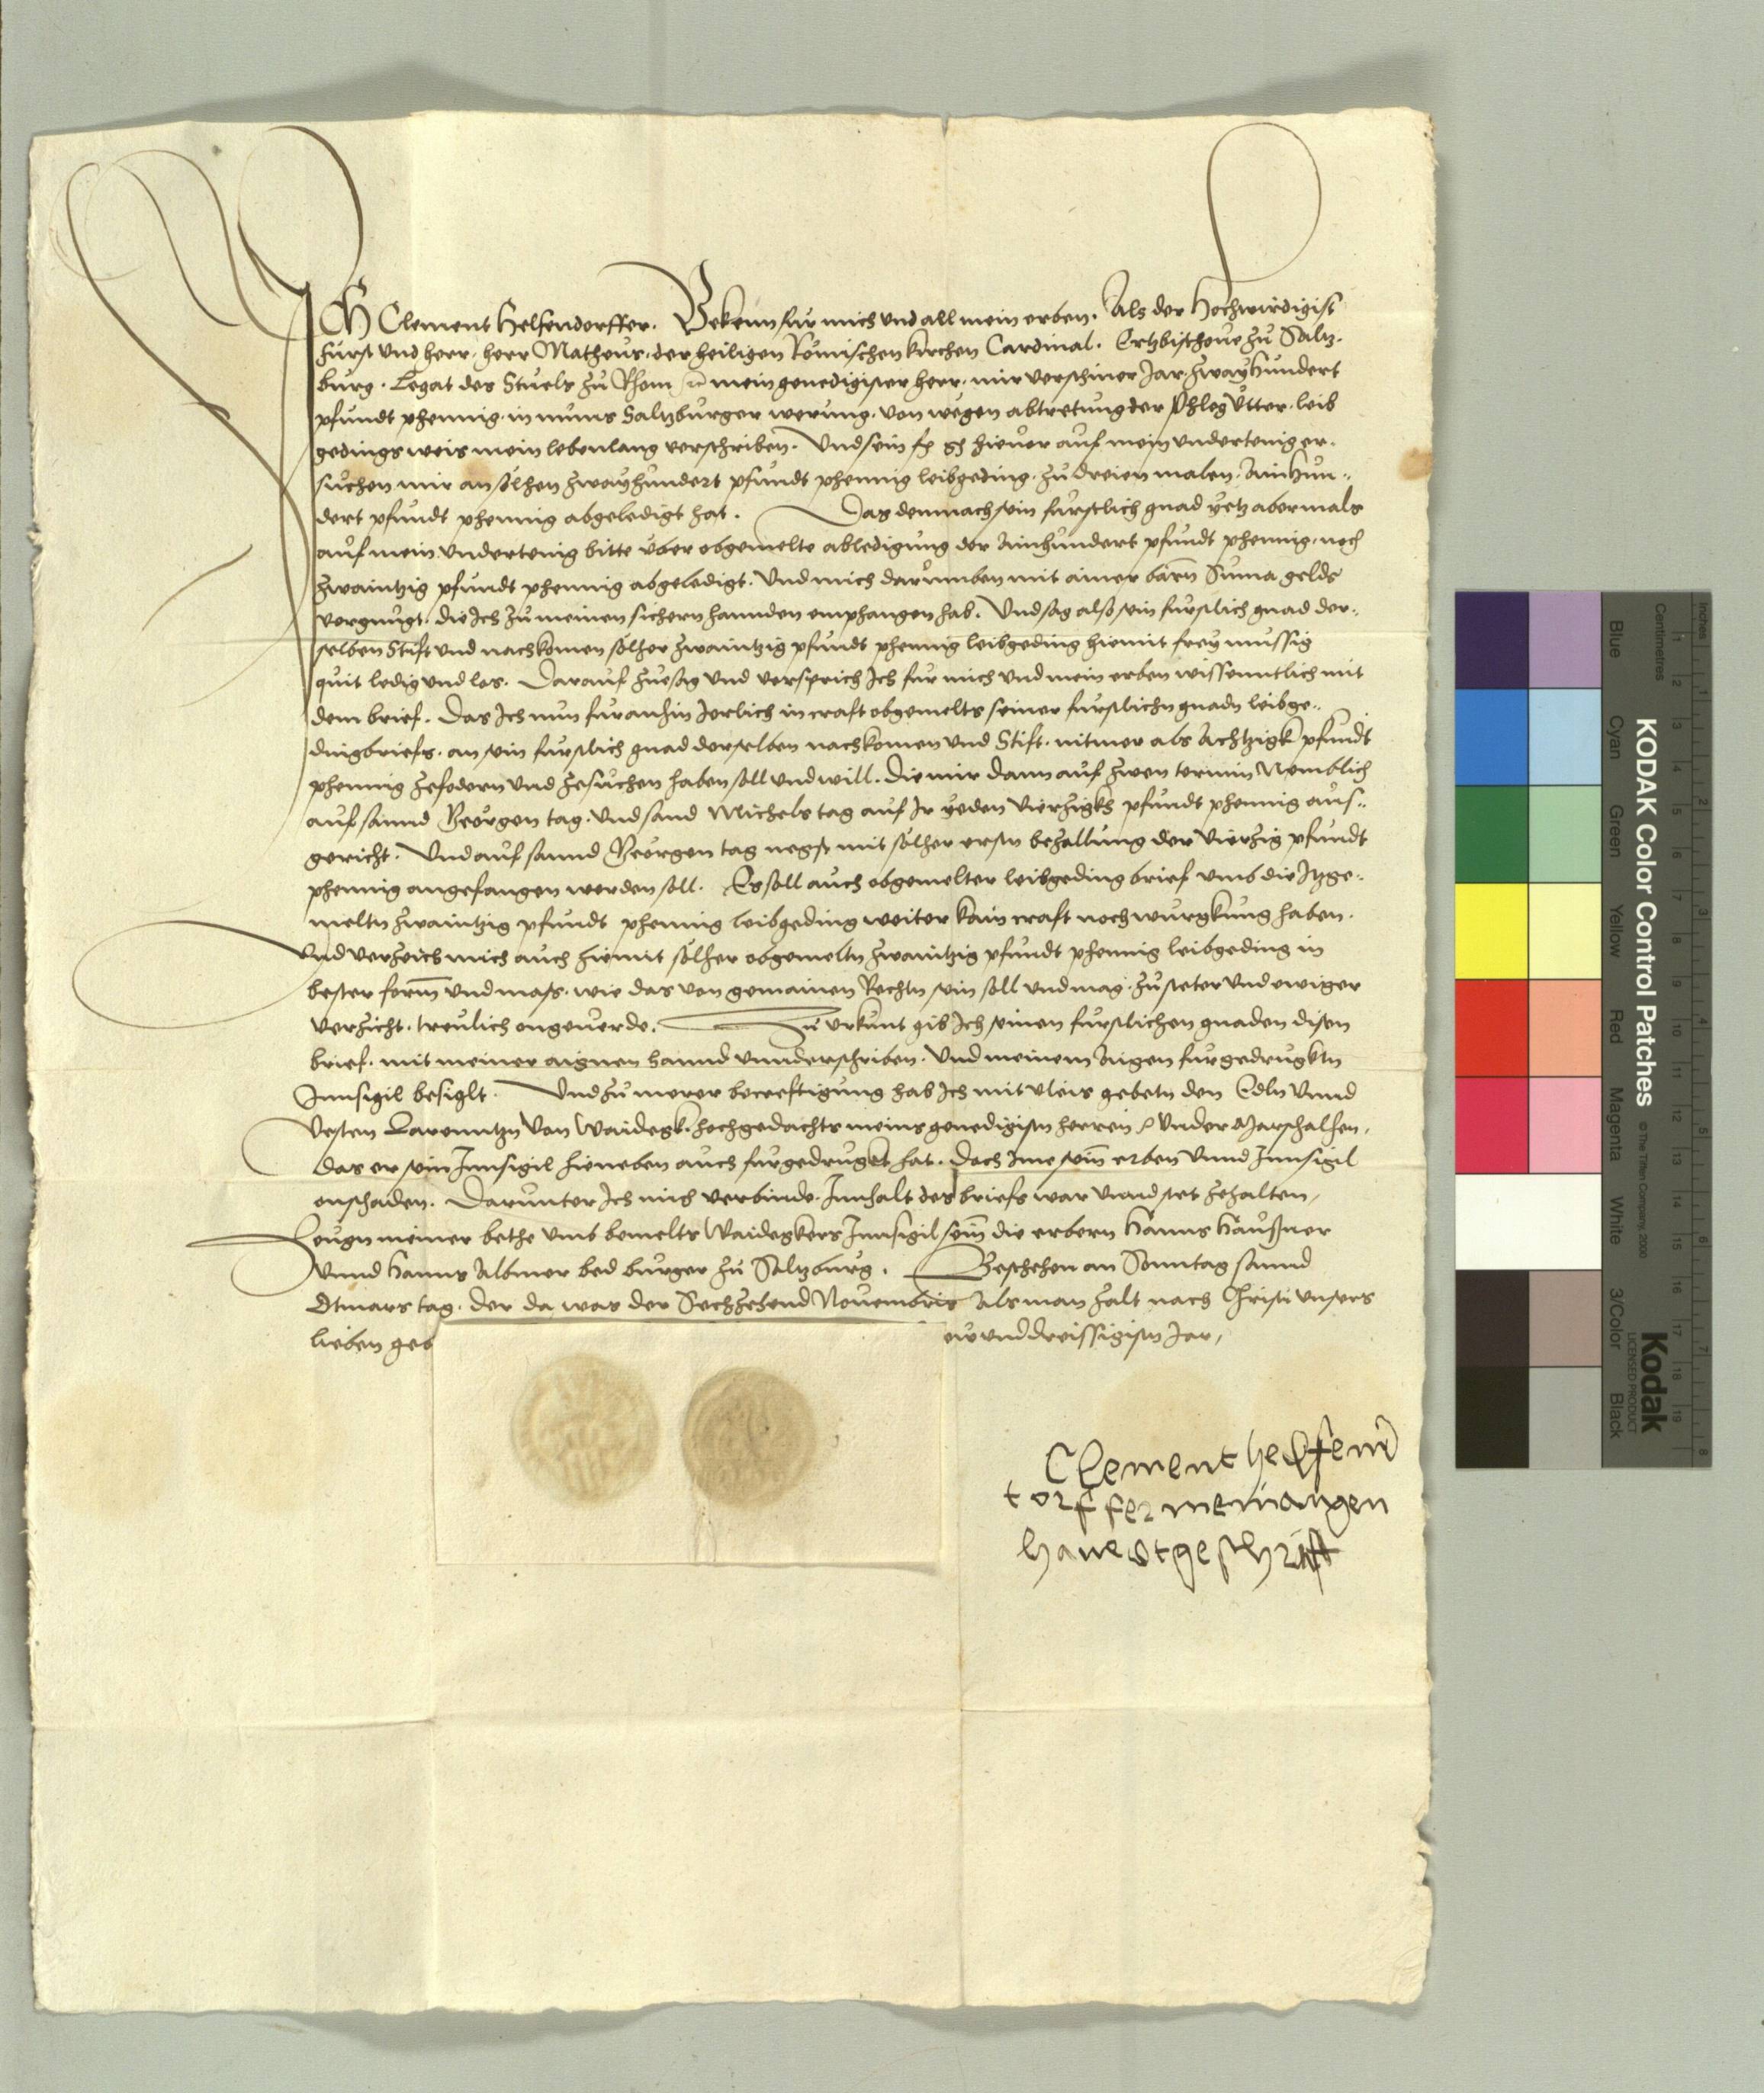 ICH Clement Helfendorffer. Bekenn fur mich und all mein erben. Als der Hochwirdigist
Furst und herr, herr Matheus, der heiligen Römischen kirchen Cardinal. Ertzbischove zu Saltz-
burg. Legat des Stuels zu Rhom mein genedigister herr, mir verschiner Jar, zwayhundert
pfundt phennig, in muns Saltzburger werung, von wegen abtretung der Phleg Utter, leib
gedings weis mein lebenlang verschriben. Und sein hievor auf mein undertenig er-
suchen mir an sölhen zwayhundert pfundt phennig leibgeding, zu dreien malen, ainhun-
dert pfundt phennig abgeledigt hat. Das demnach sein furstlich gnad yetz abermals
auf mein undertenig bitte uber obgemelte abledigung der ainhundert pfundt phennig, noch
zwaintzig pfundt phennig abgeledigt. Und mich darumben mit ainer barn Suma gelds
vergnugt, die Ich zu meinen sichern hannden emphangen hab. Und sag also sein furstlich gnad der-
selben Stift und nachkomen sölher zwaintzig pfundt phennig leibgeding hiemit frey mussig
quit ledig und los. Darauf zuesag und versprich Ich fur mich und mein erben wissenntlich mit
dem brief. Das Ich nun furanhin Jerlich in craft obgemelts seiner furstlichn gnadn leibge-
dingbriefs, an sein furstlich gnad derselben nachkomen und Stift, nit mer als Achtzigk pfundt
phennig zefodern und zesuchen haben soll und will. Die mir dann auf zwen termin Nemblich
auf sannd Georgen tag, und sand Michels tag auf Ir yeden Vierzigkh pfundt phennig aus-
gericht. Und auf sannd Georgen tag negst mit sölher erstn bezallung der Vierzig pfundt
phennig angefangen werden soll. Es soll auch obgemelter leibgeding brief umb die Itzge-
meltn zwaintzig pfundt phennig leibgeding weiter kain craft noch wurgkung haben.
Und verzeich mich auch hiemit sölher obgemeltn zwaintzig pfundt phennig leibgeding in
bester form und mass, wie das von gemainen Rechtn sein soll und mag, zu steter und ewiger
verzicht, treulich ongeverde. Zu urkunt gib Ich seinen furstlichen gnaden disen
brief, mit meiner aignen hannd unnderschriben. Und meinem Aigen furgedrugktn
Innsigil besiglt. Und zu merer becreftigung hab Ich mit vleis gebetn den Edln unnd
Vesten Larenntzn von Waidegk, hochgedachts meins genedigistn herren Under Marschalhen,
das er sein Innsigil hieneben auch furgedrugkt hat. Doch Ime sein erben unnd Innsigil
onschaden. Darunter Ich mich verbinde, Innhalt des briefs war unnd stet zehalten,
Zeugn meiner bethe umb bemelts Waidegkers Innsigil sein die erbern Hanns Haußner
unnd Hanns Albmer bed burger zu Saltzburg. Geschehen an Sonntag sannd
Otmars tag, der da was der Sechzehend Novembris Als man zalt nach Christi unsers
lieben geb und dreissigistn Jar,
Clement helfenn
torffer mein aigen
hanndtgeschrift
KODAK Color Control Patches
© The Tiffen Company, 2000
Kodak
LICENSED PRODUCT
Blue Cyan Green Yellow Red Magenta White 3/Color Black
Inches 1 2 3 4 5 6 7 8
Centimetres 1 2 3 4 5 6 7 8 9 10 11 12 13 14 15 16 17 18 19